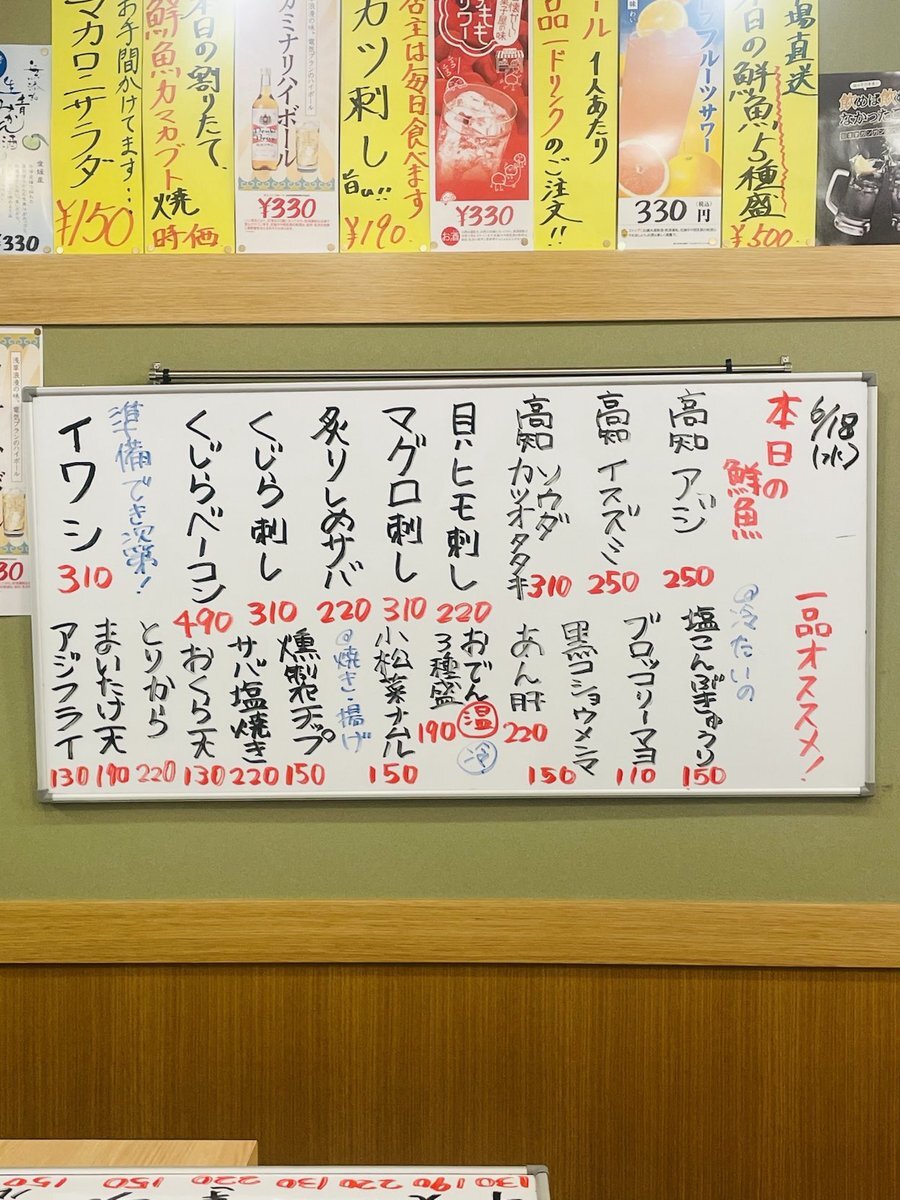 場直送
本日の鮮魚5種盛
¥500
フルーツサワー
330円
(税込)
1人あたり
一品一ドリンクのご注文!!
¥330
お酒
店主は毎日食べます
カツ刺し
旨い!!
¥190
カミナリハイボール
¥330
本日の割りたて、
鮮魚カマカブト焼
時価
お手間かけてます…
マカロニサラダ
¥150
愛媛産
¥330
6/18
(水)
本日の
鮮魚
高知 アジ
250
高知 イスズミ
250
高知 ソウダ
カツオタタキ
310
貝ヒモ刺し
220
マグロ刺し
310
炙りしめサバ
220
くじら刺し
310
くじらベーコン
490
準備でき次第!
イワシ
310
一品オススメ!
@冷たいの
塩こんぶきゅうり
150
ブロッコリーマヨ
110
黒コショウメンマ
150
あん肝
220
おでん
3種盛
温
冷
190
小松菜ナムル
150
@焼き・揚げ
燻製チップ
150
サバ塩焼き
220
おくら天
130
とりから
220
まいたけ天
190
アジフライ
130
浅草浪漫の味、電気ブランのハイボール
130 190 220 130 220 150
150
150